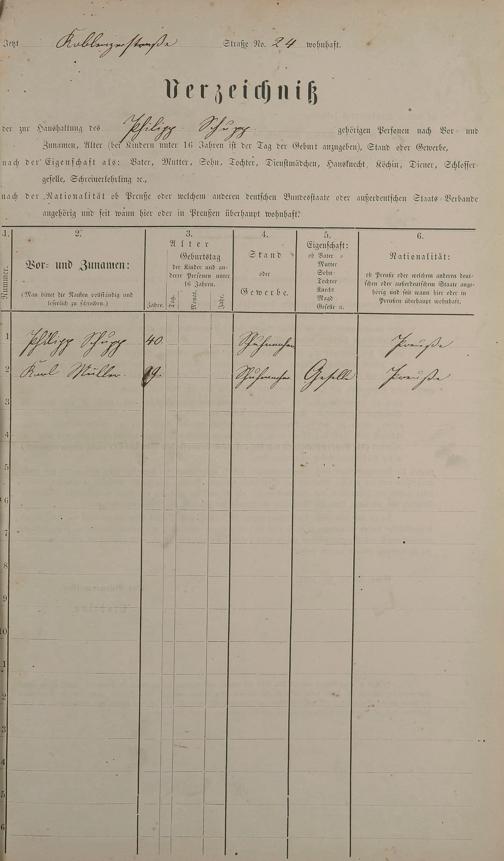 Jetzt Koblenzerstraße Straße No. 24 wohnhaft.
Verzeichniß
der zur Haushaltung des Philipp Schupp gehörigen Personen nach Vor- und
Zunamen, Alter (bei Kindern unter 16 Jahren ist der Tag der Geburt anzugeben), Stand oder Gewerbe,
nach der Eigenschaft als: Vater, Mutter, Sohn, Tochter, Dienstmädchen, Hausknecht, Köchin, Diener, Schlosser-
geselle, Schreinerlehrling ꝛc.,
nach der Nationalität ob Preuße oder welchem anderen deutschen Bundesstaate oder außerdeutschen Staats-Verbande
angehörig und seit wann hier oder in Preußen überhaupt wohnhaft.
1. 2. 3. 4. 5. 6.
Nummer.
Vor- und Zunamen:
(Man bittet die Namen vollständig und
leserlich zu schreiben.)
Alter
Geburtstag
der Kinder und an-
derer Personen unter
16 Jahren.
Jahre. Tag. Monat. Jahr.
Stand
oder
Gewerbe.
Eigenschaft:
ob Vater
Mutter
Sohn
Tochter
Knecht
Magd
Geselle u.
Nationalität:
ob Preuße oder welchem anderen deut-
schen oder außerdeutschen Staate ange-
hörig und seit wann hier oder in
Preußen überhaupt wohnhaft.
1 Philipp Schupp 40 Schuhmacher Preuße
2 Karl Müller 19. Schuhmacher Geselle Preuße
3
4
5
6
7
8
9
10
1
2
3
4
5
6